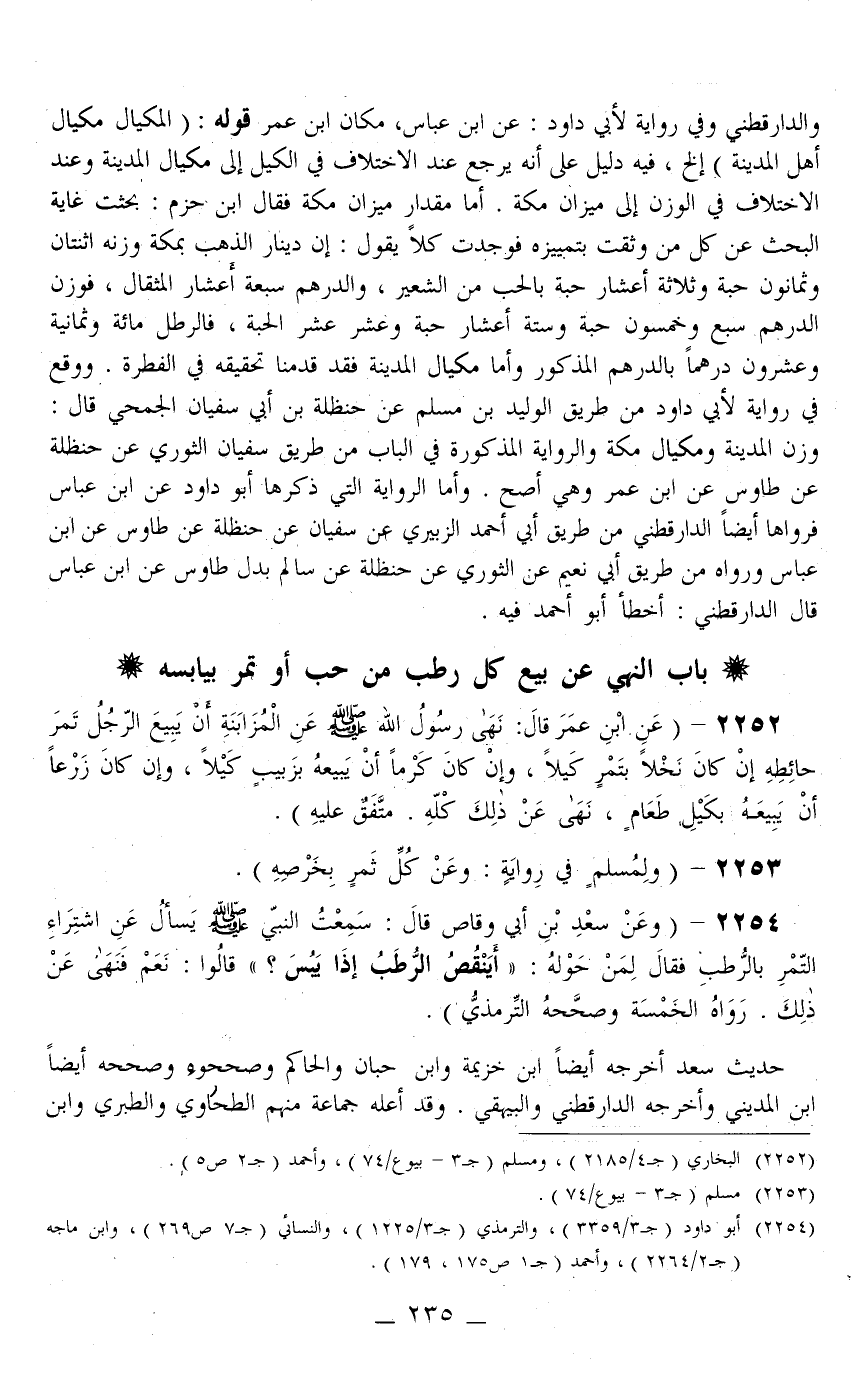 والدارقطني وفي رواية لأبي داود : عن ابن عباس، مكان ابن عمر قوله : ( المكيال مكيال
أهل المدينة ) إلخ ، فيه دليل على أنه يرجع عند الاختلاف في الكيل إلى مكيال المدينة وعند
الاختلاف في الوزن إلى ميزان مكة . أما مقدار ميزان مكة فقال ابن حزم : بحثت غاية
البحث عن كل من وثقت بتمييزه فوجدت كلاً يقول : إن دينار الذهب بمكة وزنه اثنتان
وثمانون حبة وثلاثة أعشار حبة بالحب من الشعير ، والدرهم سبعة أعشار المثقال ، فوزن
الدرهم سبع وخمسون حبة وستة أعشار حبة وعشر عشر الحبة ، فالرطل مائة وثمانية
وعشرون درهماً بالدرهم المذكور وأما مكيال المدينة فقد قدمنا تحقيقه في الفطرة . ووقع
في رواية لأبي داود من طريق الوليد بن مسلم عن حنظلة بن أبي سفيان الجمحي قال :
وزن المدينة ومكيال مكة والرواية المذكورة في الباب من طريق سفيان الثوري عن حنظلة
عن طاوس عن ابن عمر وهي أصح . وأما الرواية التي ذكرها أبو داود عن ابن عباس
فرواها أيضاً الدارقطني من طريق أبي أحمد الزبيري عن سفيان عن حنظلة عن طاوس عن ابن
عباس ورواه من طريق أبي نعيم عن الثوري عن حنظلة عن سالم بدل طاوس عن ابن عباس
قال الدارقطني : أخطأ أبو أحمد فيه .
باب النهي عن بيع كل رطب من حب أو تمر بيابسه
٢٢٥٢ – ( عَنِ ابْنِ عمَرَ قالَ: نَهَىٰ رسُولُ الله ﷺ عَنِ الْمُزَابَنَةِ أَنْ يَبِيعَ الرّجُلُ تَمرَ
حائِطِهِ إنْ كانَ نَخْلاً بتَمْرٍ كَيلاً ، وإنْ كانَ كَرْماً أنْ يَبيعهُ بزَبيبٍ كَيْلاً ، وإن كانَ زَرْعاً
أنْ يَبِيعَـهُ بكَيْلِ طَعَامٍ ، نَهَى عَنْ ذٰلِكَ كُلّهِ . متَّفَقٌ عليهِ ) .
٢٢٥٣ – ( ولِمُسلمٍ في رِوايَةٍ : وعَنْ كُلِّ ثَمرٍ بِخَرْصِهِ ) .
٢٢٥٤ – ( وعَنْ سعْدِ بْنِ أبي وقاص قالَ : سَمِعْتُ النبيّ ﷺ يَسألُ عَنِ اشتِرَاءِ
التّمْرِ بالرُّطبِ فقالَ لِمَنْ حَوْلهُ : « أَيَنْقُصُ الرُّطَبُ إذَا يَبُسَ ؟ » قالُوا : نَعَمْ فَنَهَىٰ عَنْ
ذٰلِكَ . رَوَاهُ الخَمْسَة وصحَّحهُ التِّرمذيُّ ) .
حديث سعد أخرجه أيضاً ابن خزيمة وابن حبان والحاكم وصححوه وصححه أيضاً
ابن المديني وأخرجه الدارقطني والبيهقي . وقد أعله جماعة منهم الطحاوي والطبري وابن
(٢٢٥٢) البخاري ( جـ٢١٨٥/٤ ) ، ومسلم ( جـ٣ – بيوع/٧٤ ) ، وأحمد ( جـ٢ ص٥ ) .
(٢٢٥٣) مسلم ( جـ٣ – بيوع/٧٤ ) .
(٢٢٥٤) أبو داود ( جـ٣٣٥٩/٣ ) ، والترمذي ( جـ١٢٢٥/٣ ) ، والنسائي ( جـ٧ ص٢٦٩ ) ، وابن ماجه
( جـ٢٢٦٤/٢ ) ، وأحمد ( جـ١ ص١٧٥ ، ١٧٩ ) .
– ٢٣٥ –